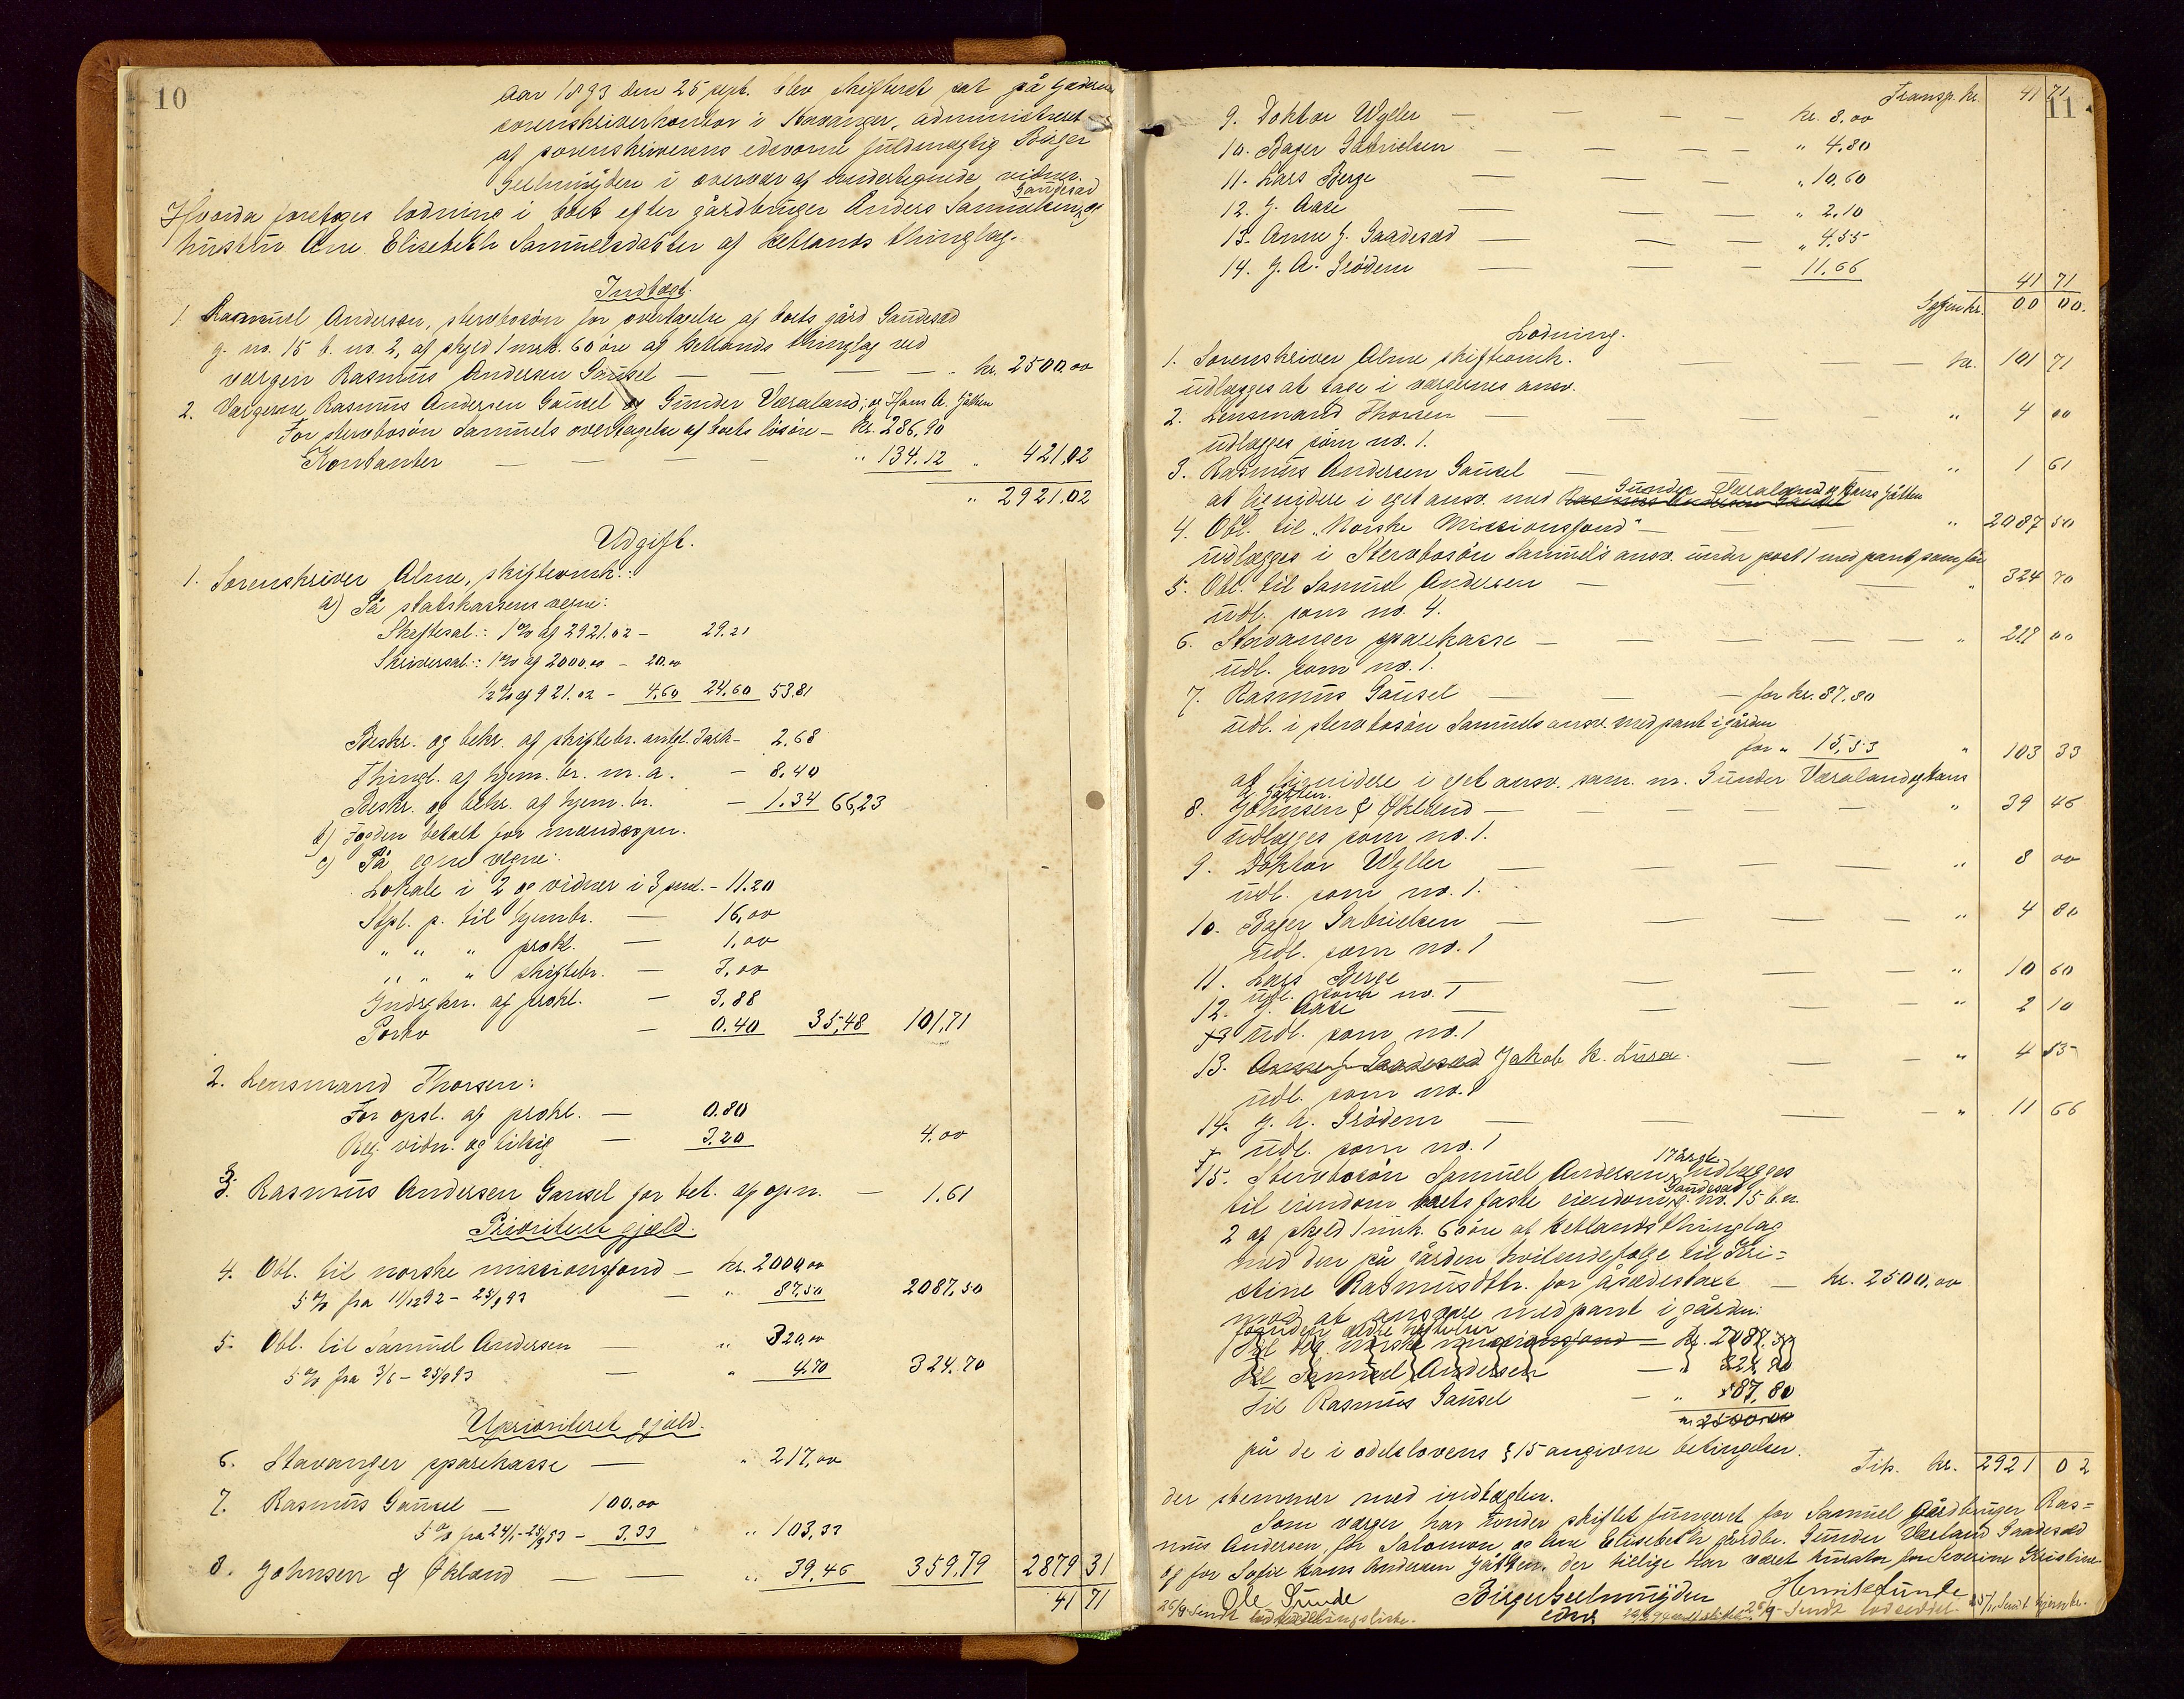 10
Aar 1893 den 25 sept. blev skifteret sat på Jæderens
sorenskriverkontor i Stavanger, administreret
af sorenskriverens edsvorne fuldmægtig Birger
Geelmuÿden i overvær af undertegnede vidner.
Hvorda foretoges lodning i boet efter gårdbruger Anders Samuelsen Gandesad og
hustru Ane Elisebeth Samuelsdatter af Hetlands thinglag.
Indtægt.
1. Samuel Andersen, stervbosøn for overtagelse af boets gård Gandesad
g. no. 15 b. no. 2, af skyld 1 mrk. 60 øre af Hetlands thinglag ved
værgen Rasmus Andersen Gausel — — — kr. 2500,00
2. Værgerne Rasmus Andersen Gausel og Gunder Væraland; og Hans A. Jåtten
For stervbosøn Samuels overtagelse af boets løsøre – kr. 286,90
Kontanter — — — „ 134.12 „ 421,02
„ 2921.02
Udgift.
1. Sorenskriver Alme, skifteomk.:
a) På statskassens vegne:
Skiftesal.: 1% af 2921.02 – 29.21
Skriversal.: 1% af 2000.00 – 20.00
1/2 % af 921.02 – 4.60 24.60 53.81
Beskr. og bekr. af skiftebr. – 2.68
Thingl. af hjem. br. m. a. – 8.40
Beskr. og bekr. af hjem. br. – 1.34 66,23
b) Fogden betalt for mændsopn.
c) På egne vegne:
Lokale i 2 og vidner i 3 – 11.20
Stpl. p. til hjembr. — 16,00
„ „ „ prokl. — 1,00
„ „ „ skiftebr. — 3,00
Indrykn. af prokl. — 3,88
Porto — 0.40 35,48 101,71
2. Lensmand Thorsen:
For opsl. af prokl. — 0.80
Reg. vidn. og tilsig — 3.20 4.00
3. Rasmus Andersen Gausel for bet. af opn. — 1.61
Prioriteret gjæld.
4. Obl. til norske missionsfond – kr. 2000,00
5% fra 11/12 92 – 25/9 93 — „ 87,50 2087,50
5. Obl. til Samuel Andersen — „ 320,00
5% fra 3/6 – 25/9 93 — „ 4.70 324,70
Uprioriteret gjæld.
6. Stavanger sparekasse — „ 217,00
7. Rasmus Gausel — 100.00
5% fra 24/1 – 25/9 93 – 3,33 „ 103,33
8. Johnsen & Økland — — „ 39,46 359,79 2879 31
41 71
11
Transp. kr. 41 71
9. Doktor Wyller — — — kr. 8.00
10. Bager Gabrielsen — — — „ 4.80
11. Lars Berge — — — „ 10.60
12. J. Aase — — — „ 2.10
13. Anne J. Gaadesad — — — „ 4.55
14. J. A. Grødem — — — 11.66
41 71
Igjen kr. 00 00.
Lodning.
1. Sorenskriver Alme skifteomk. — — kr. 101 71
udlægges at tage i værgernes ansv.
2. Lensmand Thorsen — — „ 4 00
udlægges som no. 1.
3. Rasmus Andersen Gausel — — „ 1 61
at liquidere i eget ansv. med Rasmus Andersen Gausel Gunder Væraland og Hans Jåtten
4. Obl. til „Norske Missionsfond" — — „ 2087 50
udlægges i Stervbosøn Samuels ansv. under post 1 med pant som før
5. Obl. til Samuel Andersen — — „ 324 70
udl. som no. 4.
6. Stavanger sparekasse — — — „ 217 00
udl. som no. 1.
7. Rasmus Gausel — — for kr. 87.80
udl. i stervbosøn Samuels ansv. med pant i gården
for „ 15,53 „ 103 33
at liquidere i eget ansv. sam. m. Gunder Væraland og Hans
Jåtten.
8. Johnsen & Økland — — — „ 39 46
udlægges som no. 1.
9. Doktor Wyller — — — „ 8 00
udl. som no. 1.
10. Bager Gabrielsen — — — „ 4 80
udl. som no. 1
11. Lars Berge — — — „ 10 60
udl. som no. 1
12. J. Aase — — — „ 2 10
udl. som no. 1
13. Anne J. Gaadesad Jakob K. Lura. — — „ 4 55
udl. som no. 1
14. J. A. Grødem — — — „ 11 66
udl. som no. 1
15. Stervbosøn Samuel Andersen, 17 årgl. udlægges
til eiendom boets faste eiendom, Gandesad g. no. 15 b. n.
2 af skyld 1 mrk. 60 øre af Hetlands thinglag
med den på gården hvilende følge til Kri=
stine Rasmusdtr. for åsædestaxt — kr. 2500,00
mod at ansvare med pant i gården:
foruden ældre heftelser
Til det norske missionsfond — kr. 2087.50
Til Samuel Andersen — „ 324,70
Til Rasmus Gausel — „ 87,80
kr 2500.00
på de i odelslovens § 15 angivne betingelser.
Tils. kr. 2921 02
der stemmer med indtægten.
Som værger har under skiftet fungeret for Samuel gårdbruger Ras=
mus Andersen, for Salomon og Ane Elisebeth gårdbr. Gunder Værland Gaadesæd
og for Sofie Hans Andersen Jåtten, der tillige har været kurator for Severine Kristine
Ole Sunde Birger Geelmuÿden Henrik Sunde
edsv.
26/9 Sendt 25/9 Sendt lodseddel. Sendt hjembr.